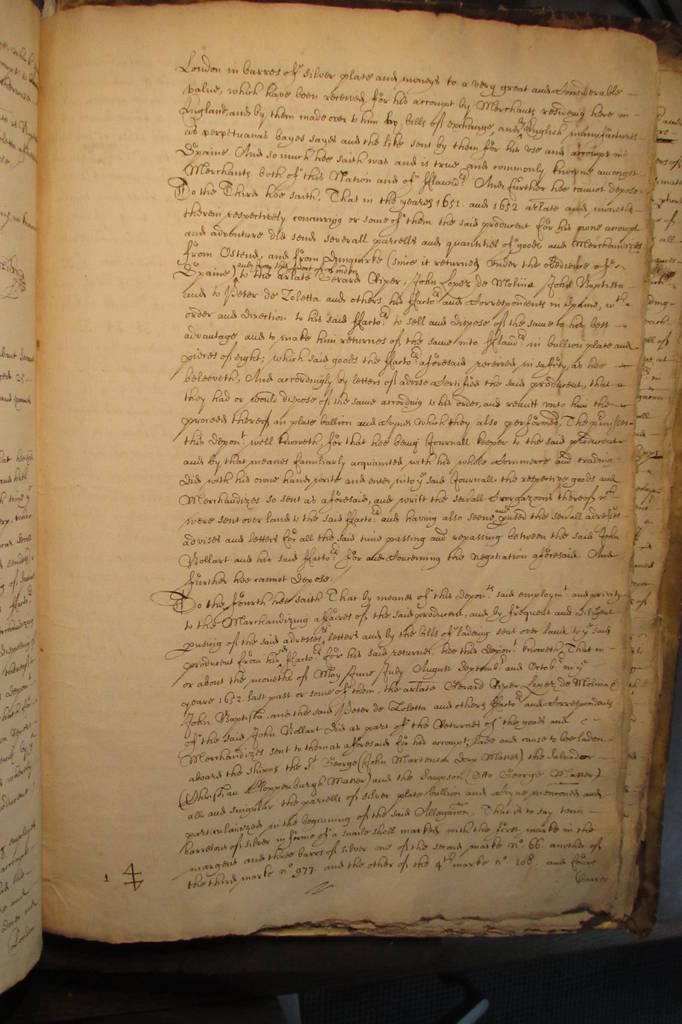 London in barres of silver plate and moneys to a very great and Considerable
value, which have been received for his accompt by Merchants resideing here in
England, and by them made over to him by bills of exchange, and English manufactures
as perpetuanas bayes sayes and the like sent by them for his use and accompt in
Spaine. And so much hee saith was and is true and commonly knowne amongst
Merchants both of this Nation and of fflanders. And further hee cannot depose
To the Third hee saith, That in the yeares 1651. and 1652 arlate and moneths
therein respectively concurring or some of them the said producent for his owne accompt
and adventure did send severall parcells and quantities of goods and Merchandizes
from Ostend, and from Dunquirke (since it returned under the obedience of
Spaine) and from this port of London to the arlate Gerard Piper, John Lopez de Molina John Baptista
and to Peter de Zoletta and others, his ffactors and Correspondents in Spaine, with
order and direction to his said ffactors to sell and dispose of the same to his best
advantage and to make him returnes of the same into fflanders in bullion plate and
peeces of eight; which said goods the ffactors aforesaid received in safety, as hee
beleeveth, And accordingly by letters of advise Certified the said producent, that
they had or would dispose of the same according to his order, and remitt unto him the
proceed thereof in plate bullion and Coyne which they also performed, The premisses
this deponent well knoweth, for that hee being Journall keeper to the said producent
and by that meanes familiarly acquainted with his whole Commerce and trading
did with his owne hand write and enter into the said Journalls the respective goods and
Merchandizes so sent as aforesaid, and write the severall Cargazoons thereof
were sent over land to the said ffactors and having also seene and perused the severall
advises and letters for all the said time passing and repassing between the said John
Rollart and his said ffactors for and Concerning the negotiation aforesaid. And
further hee cannot depose.
To the fourth hee saith That by meanes of this deponents said employment and privity
to the Merchandizing affaires of the said producent, and by frequent and
perusing of the said addresses, letters and by the bills of ladeing sent over land to the said
producent from his ffactors for his said returnes, hee this deponent knoweth, That in
or about the moneths of May June July August September and October in the
yeare 1652. last past or some of them, the arlate Gerard Piper, Lopez de Molina
John Baptista, and the said Peter de Zoletta and others ffactors and Correspondents
of the said John Rollart did as part of the Returnes of the goods and
Merchandizes sent to them as aforesaid for his accompt, lade and cause to bee laden
aboard the shipps the St George (John Martenson Dorp Master) the Salvador
(Christian Cloppenburgh Master) and the Sampson (Otto George Master)
all and singular the parcells of silver plate bullion and Coyne mencioned and
particularized in the beginning of the said Allegation. That is to say, two
barretons of silver in forme of a snaile shell marked with the first marke in the
margent and three barrs of silver one of the second marke no. 66. another of
the third marke no. 977. and the other of the 4th marke no. 108. and foure
1
barres